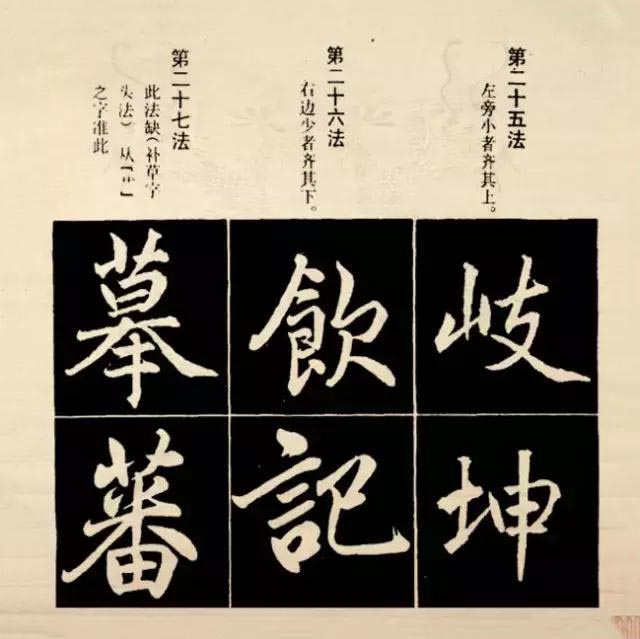 第二十五法
左旁小者齐其上。
岐
坤
第二十六法
右边少者齐其下。
飲
記
第二十七法
此法缺(补草字
头法)从【艹】
之字准此
摹
蕃